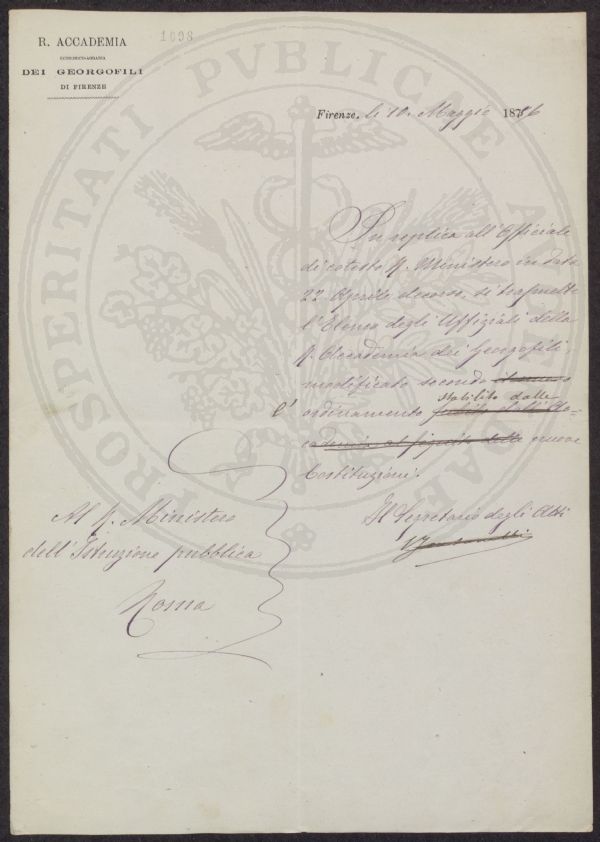 R. ACCADEMIA
ECONOMICO-AGRARIA
DEI GEORGOFILI
DI FIRENZE
1098
Firenze. li 10. Maggio 1876
In replica all'Officiale
di cotesto R. Ministero in data
22 Aprile decorso, si trasmette
l'Elenco degli Uffiziali della
R. Accademia dei Georgofili,
modificato secondo
l' ordinamento stabilito dalle
nuove
Costituzioni.
Il Segretario degli Atti
Al R. Ministero
dell'Istruzione pubblica
Roma
PROSPERITATI PVBLICAE AVGENDAE